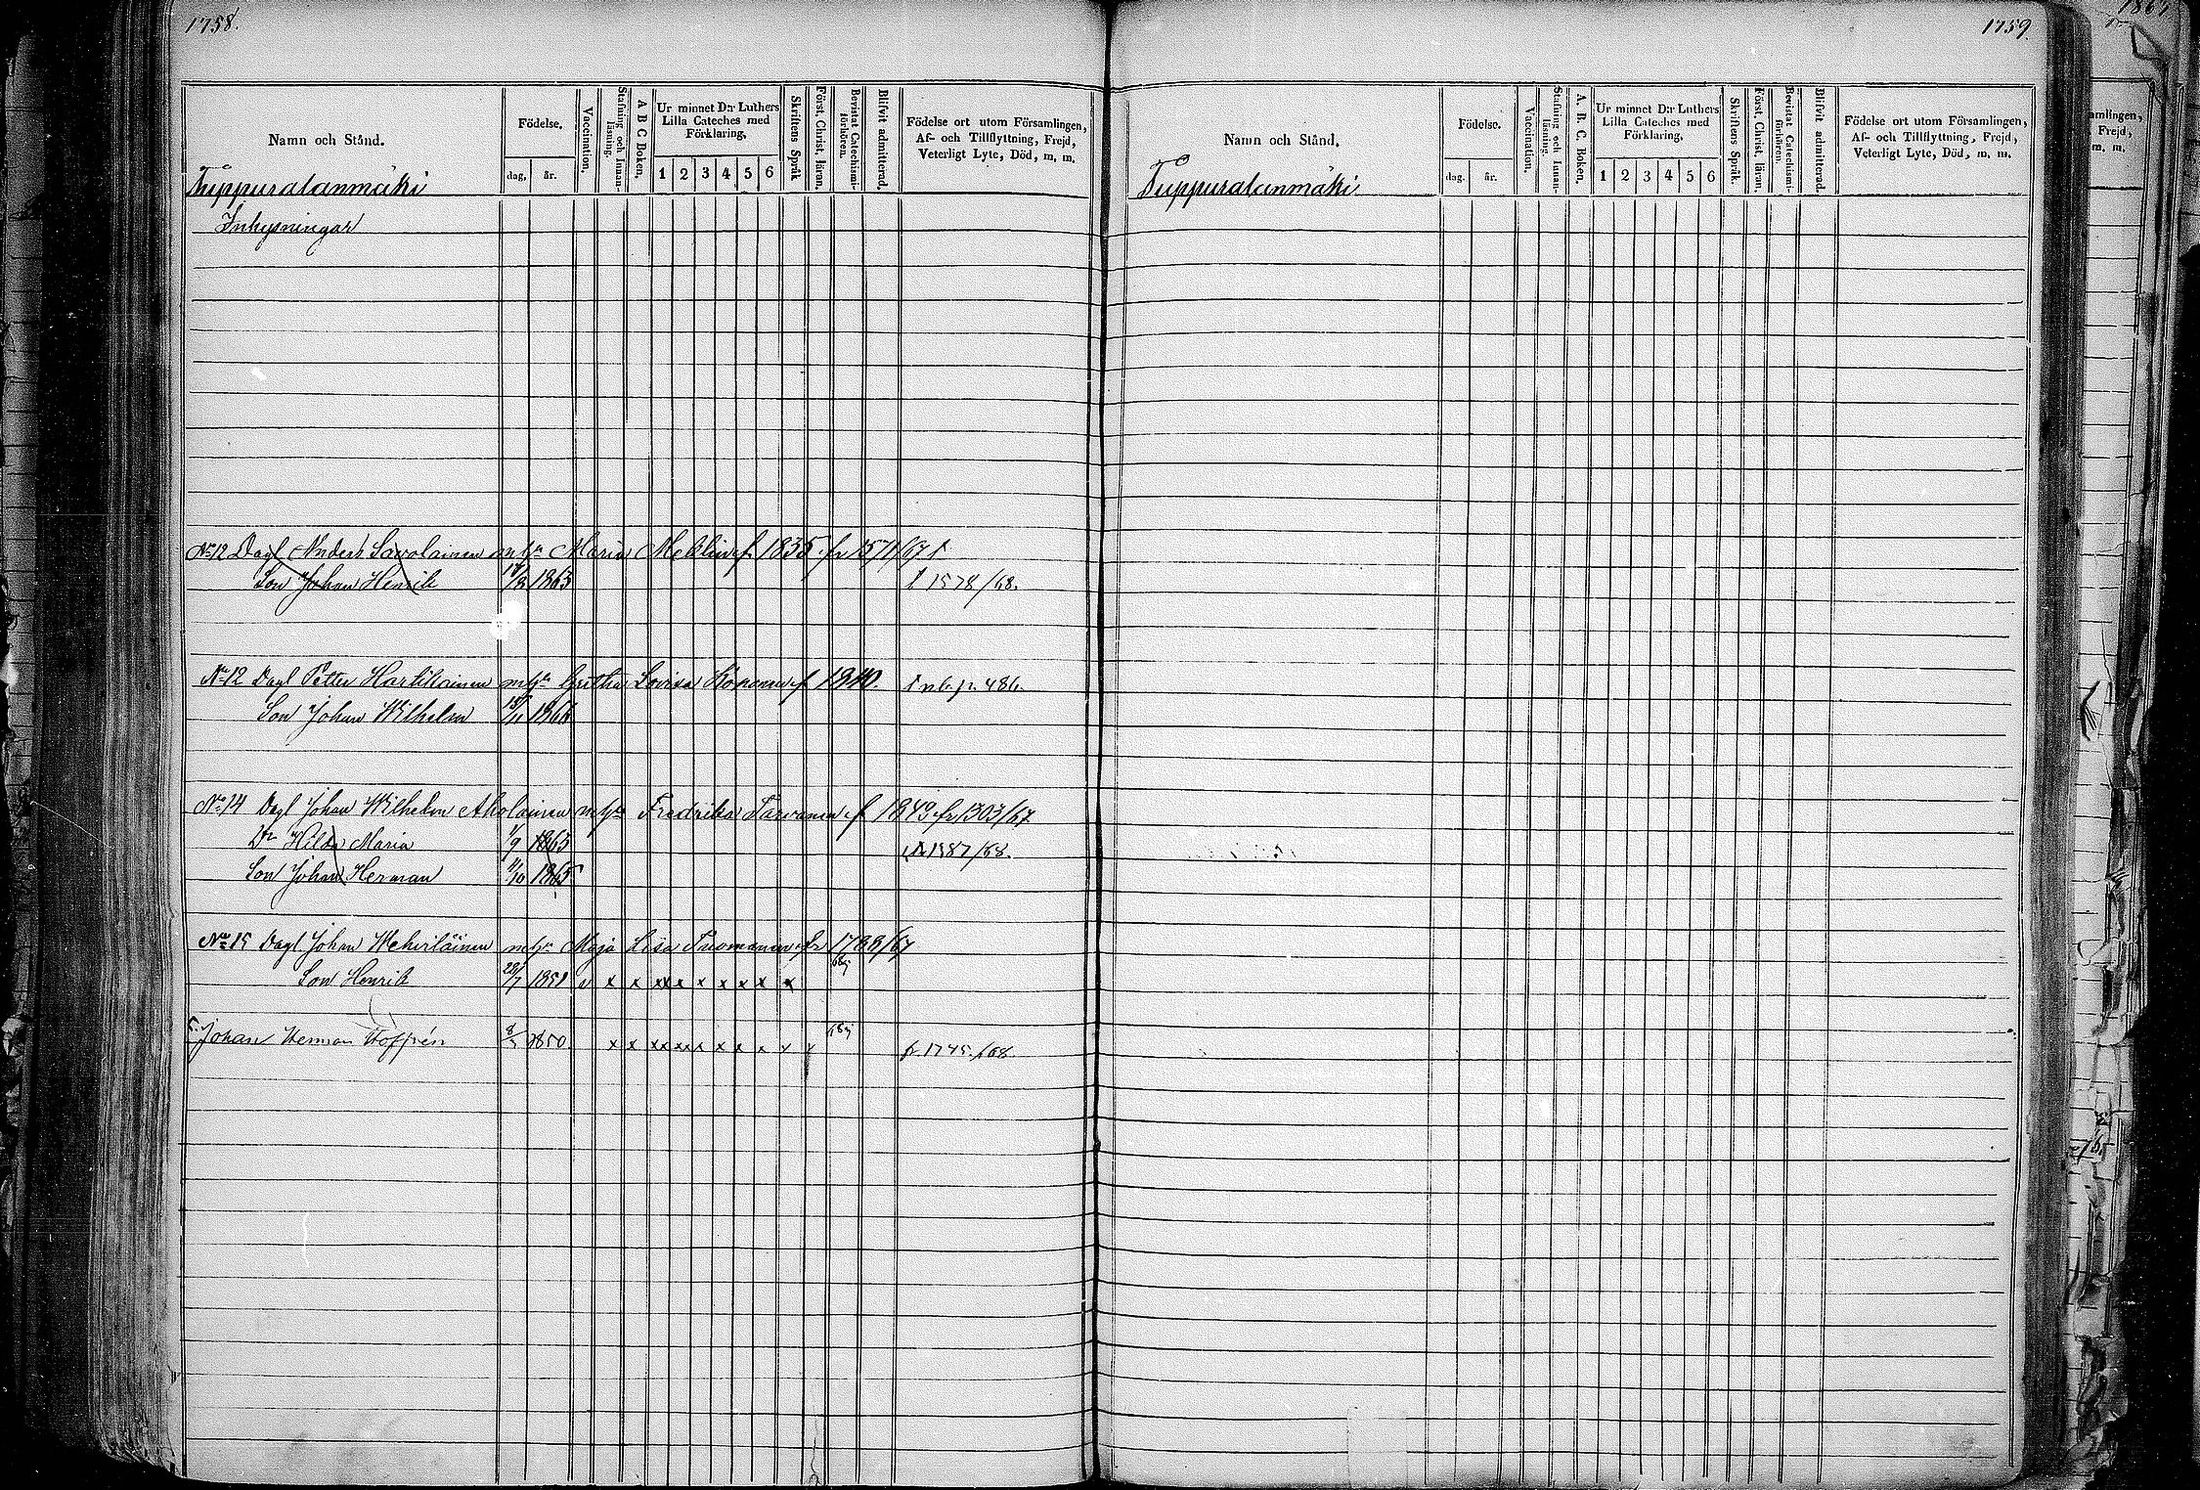 1758.
Namn och Stånd.
Födelse.
dag, år.
Vaccination.
Stafning och Innan-läsning.
A B C Boken,
Ur minnet D:r Luthers Lilla Cateches med Förklaring,
1 2 3 4 5 6
Skriftens Språk
Först. Christ. läran.
Bevistat Catechismi-förhören.
Blifvit admitterad.
Födelse ort utom Församlingen,
Af- och Tillflyttning, Frejd,
Veterligt Lyte, Död, m. m.
Tuppuralanmäki
Inhysningar
No 12 Dagl Anders Savolainen m h:u Maria f. 1835. fr 1571/67
Son Johan Henrik 1863 1578/68.
No 12 Dagl Petter Hartikainen m h:u Gretha Lovisa Kononen f 1840. p. 486.
Son Johan Wilhelm 18/11 1866
No 14 Dagl Johan Wilhelm Aholainen m h:u Fredrika Tarvanen f 1843 fr 1303/67
Dr Hilda Maria 1/9 1863 1587/68.
Son Johan Herman 11/10 1865
No 15 Dagl Johan m h:u Maja Lisa Tuomanen fr 1788/67
Son Henrik 28/7 1851 v x x xx x x x x x x 68
Johan Herman Hoffrén 1850. x x xx xx x x x x x x 68 fr. 1745/68
1759.
Namn och Stånd.
Födelse.
dag. år.
Vaccination.
Stafning och Innan-läsning.
A. B. C. Boken.
Ur minnet D:r Luthers Lilla Cateches med Förklaring.
1 2 3 4 5 6
Skriftens Språk.
Först. Christ. läran.
Bevistat Catechismi-förhören.
Blifvit admitterad.
Födelse ort utom Församlingen,
Af- och Tillflyttning, Frejd,
Veterligt Lyte, Död, m. m.
Tuppuralanmäki
amlingen,
Frejd,
m. m.